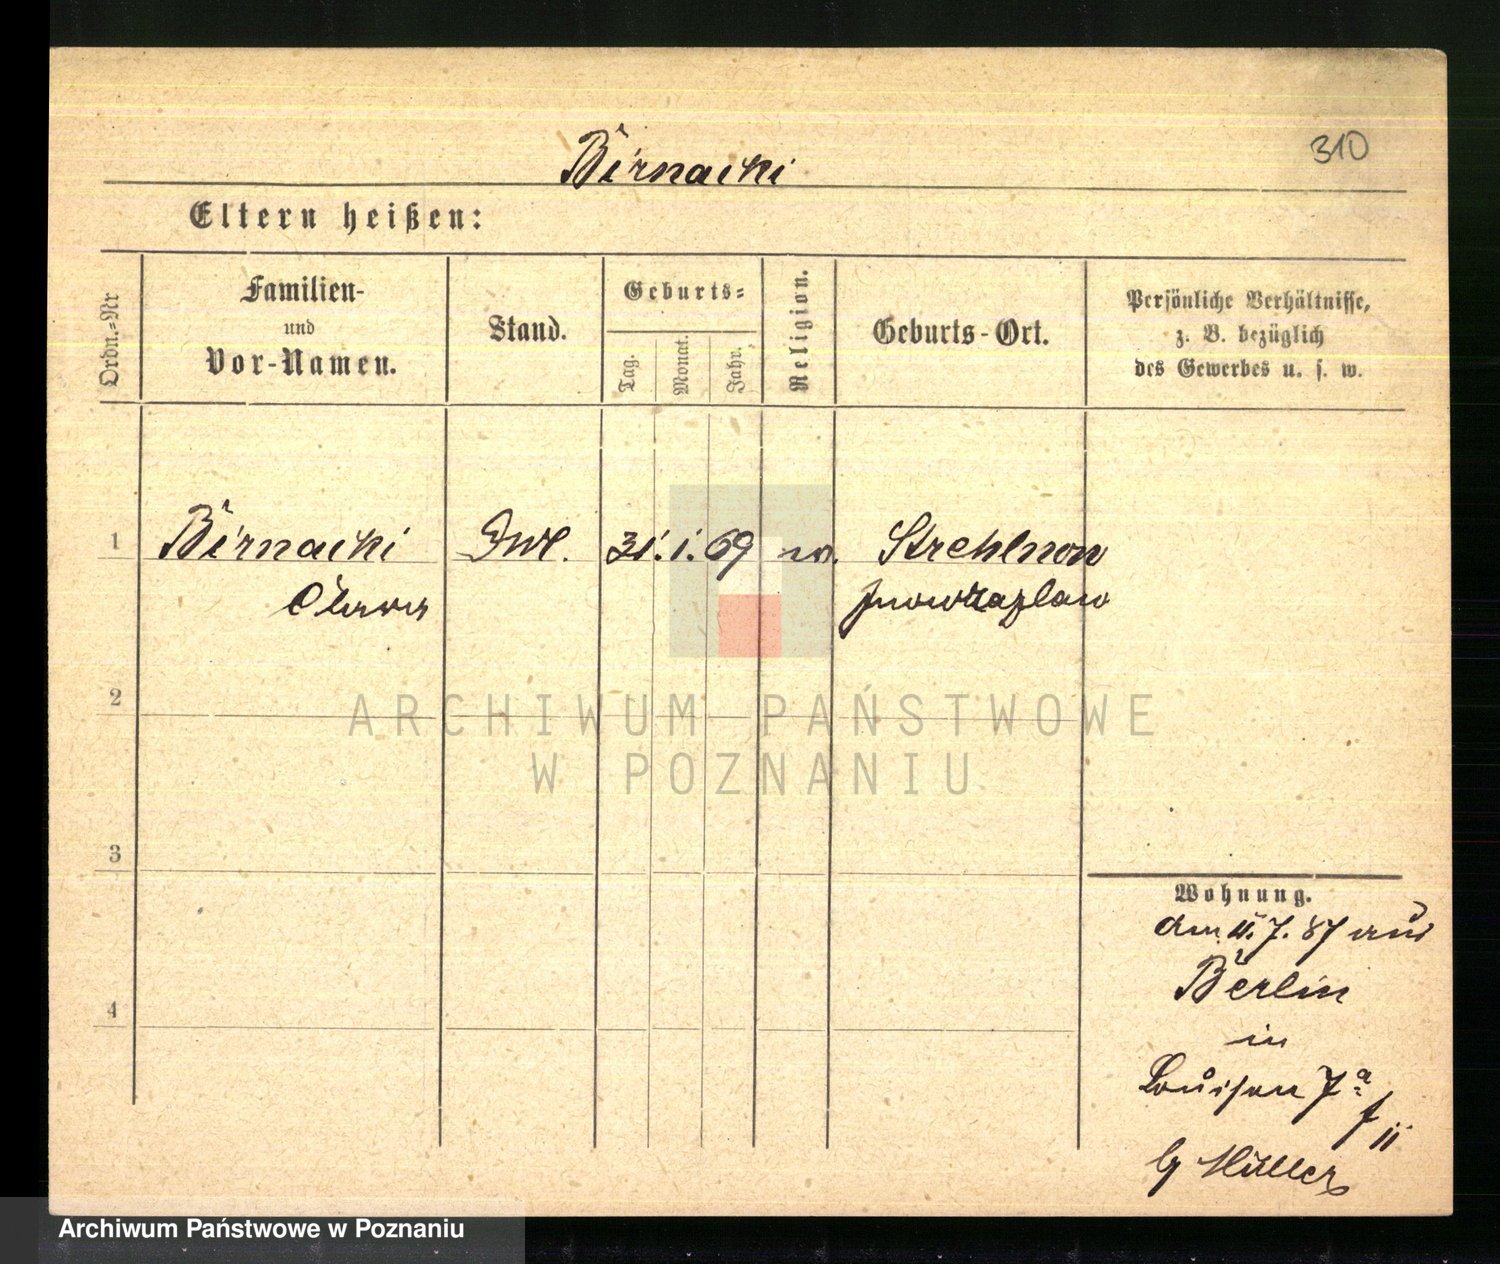 310
Birnacki
Eltern heißen:
Ordn.=Nr
Familien-
und
Vor-Namen.
Stand.
Geburts=
Tag.
Monat.
Jahr.
Religion.
Geburts-Ort.
Persönliche Verhältnisse,
z. B. bezüglich
des Gewerbes u. s. w.
1
Birnacki
31. 1. 69
Strehlnow
Inowrazlaw
2
ARCHIWUM PAŃSTWOWE
W POZNANIU
3
4
Wohnung.
am 11. 7. 87 aus
Berlin
in
Louisen 7a
II
Müller
Archiwum Państwowe w Poznaniu